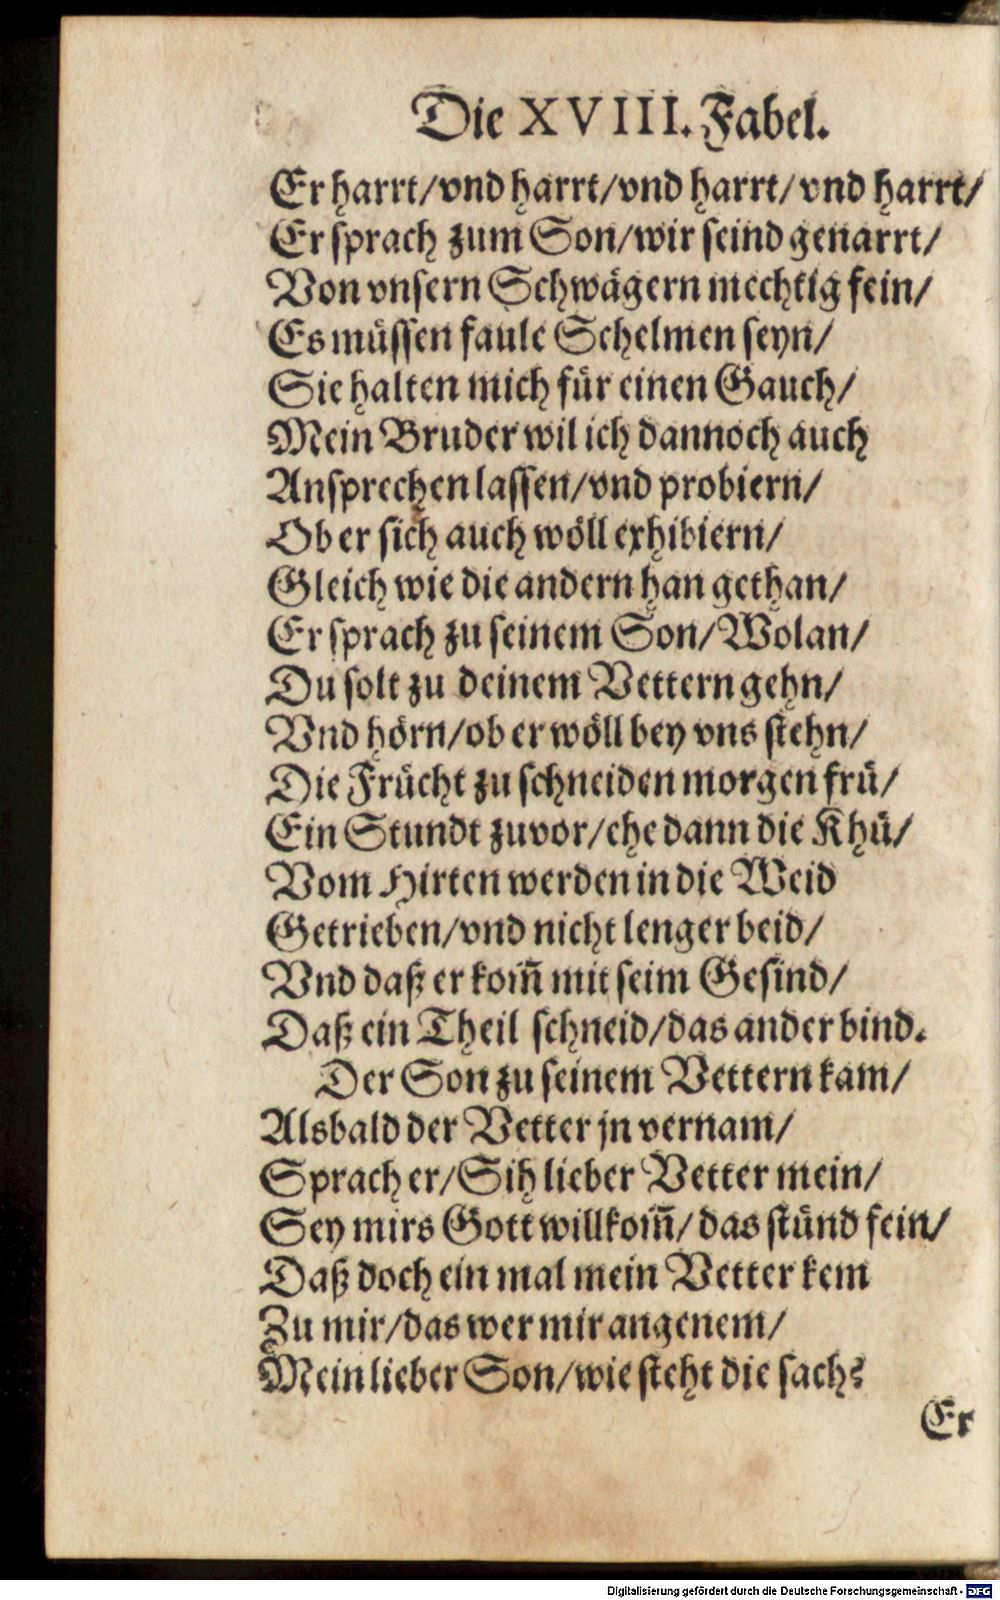 Die XVIII. Fabel.
Er harrt/vnd harrt/vnd harrt/vnd harrt/
Er sprach zum Son/wir seind genarrt/
Von vnsern Schwägern mechtig fein/
Es müssen faule Schelmen seyn/
Sie halten mich für einen Gauch/
Mein Bruder wil ich dannoch auch
Ansprechen lassen/vnd probiern/
Ob er sich auch wöll exhibiern/
Gleich wie die andern han gethan/
Er sprach zu seinem Son/Wolan/
Du solt zu deinem Vettern gehn/
Vnd hörn/ob er wöll bey vns stehn/
Die Frücht zu schneiden morgen frü/
Ein Stundt zuvor/ehe dann die Khü/
Vom Hirten werden in die Weid
Getrieben/vnd nicht lenger beid/
Vnd daß er kom̃ mit seim Gesind/
Daß ein Theil schneid/das ander bind.
Der Son zu seinem Vettern kam/
Alsbald der Vetter jn vernam/
Sprach er/Sih lieber Vetter mein/
Sey mirs Gott willkom̃/das stünd fein/
Daß doch ein mal mein Vetter kem
Zu mir/das wer mir angenem/
Mein lieber Son/wie steht die sach?
Er
Digitalisierung gefördert durch die Deutsche Forschungsgemeinschaft - DFG